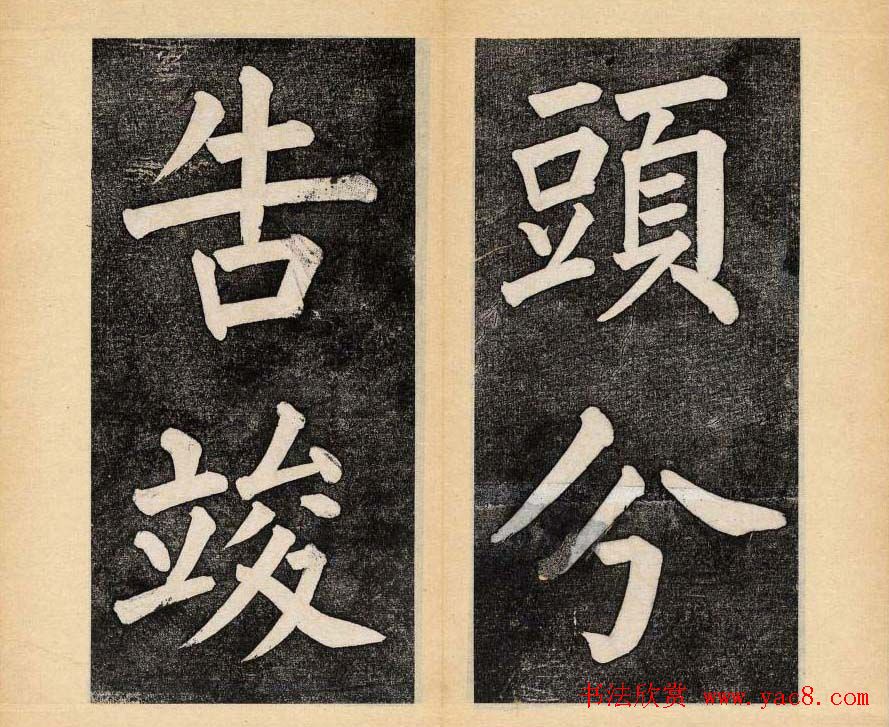 頭兮
告竣
书法欣赏 www.yac8.com